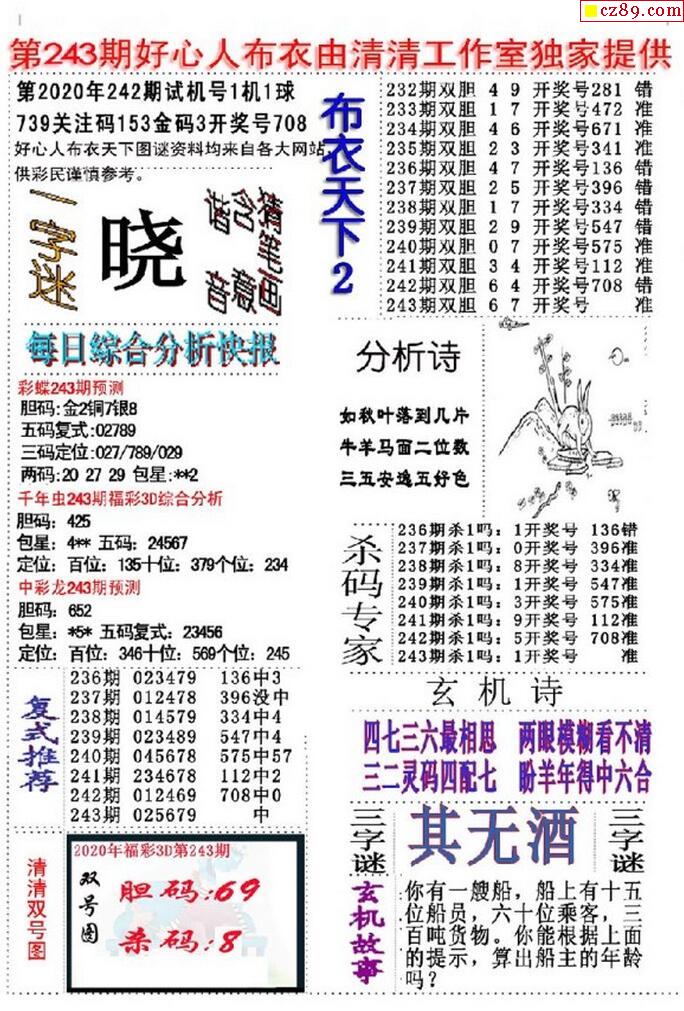 cz89.com
第243期好心人布衣由清清工作室独家提供
第2020年242期试机号1机1球
739关注码153金码3开奖号708
好心人布衣天下图谜资料均来自各大网站,
供彩民谨慎参考。
一字迷
晓
猜笔画
含意
谐音
布衣天下2
232期双胆 4 9 开奖号281 错
233期双胆 1 7 开奖号472 准
234期双胆 4 6 开奖号671 准
235期双胆 2 3 开奖号341 准
236期双胆 4 7 开奖号136 错
237期双胆 2 5 开奖号396 错
238期双胆 1 7 开奖号334 错
239期双胆 2 9 开奖号547 错
240期双胆 0 7 开奖号575 准
241期双胆 3 4 开奖号112 准
242期双胆 6 4 开奖号708 错
243期双胆 6 7 开奖号 准
每日综合分析快报
彩蝶243期预测
胆码:金2铜7银8
五码复式:02789
三码定位:027/789/029
两码:20 27 29 包星:**2
千年虫243期福彩3D综合分析
胆码: 425
包星: 4** 五码: 24567
定位: 百位: 135十位: 379个位: 234
中彩龙243期预测
胆码: 652
包星: *5* 五码复式: 23456
定位: 百位: 346十位: 569个位: 245
分析诗
如秋叶落到几片
牛羊马面二位数
三五安逸五好色
杀码专家
236期杀1吗: 1开奖号 136错
237期杀1吗: 0开奖号 396准
238期杀1吗: 8开奖号 334准
239期杀1吗: 1开奖号 547准
240期杀1吗: 3开奖号 575准
241期杀1吗: 9开奖号 112准
242期杀1吗: 5开奖号 708准
243期杀1吗: 1开奖号 准
复式推荐
236期 023479 136中3
237期 012478 396没中
238期 014579 334中4
239期 023489 547中4
240期 045678 575中57
241期 234678 112中2
242期 012469 708中0
243期 025679 中
玄机诗
四七三六最相思 两眼模糊看不清
三二灵码四配七 盼羊年得中六合
三字谜
其无酒
三字谜
清清双号图
2020年福彩3D第243期
双号图
胆码:69
杀码:8
玄机故事
你有一艘船，船上有十五
位船员，六十位乘客，三
百吨货物。你能根据上面
的提示，算出船主的年龄
吗?